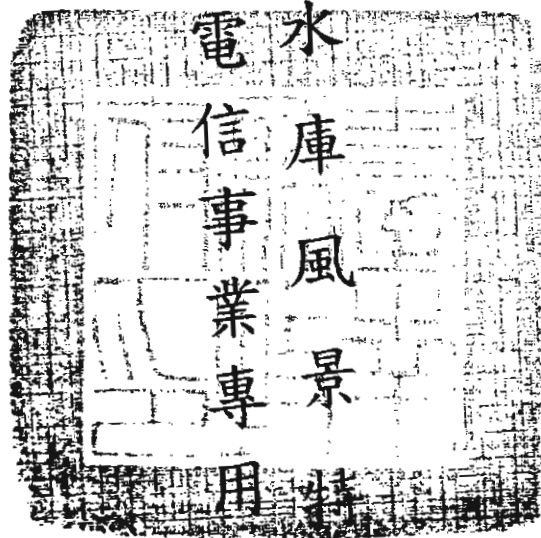 水庫風景特
電信事業專用